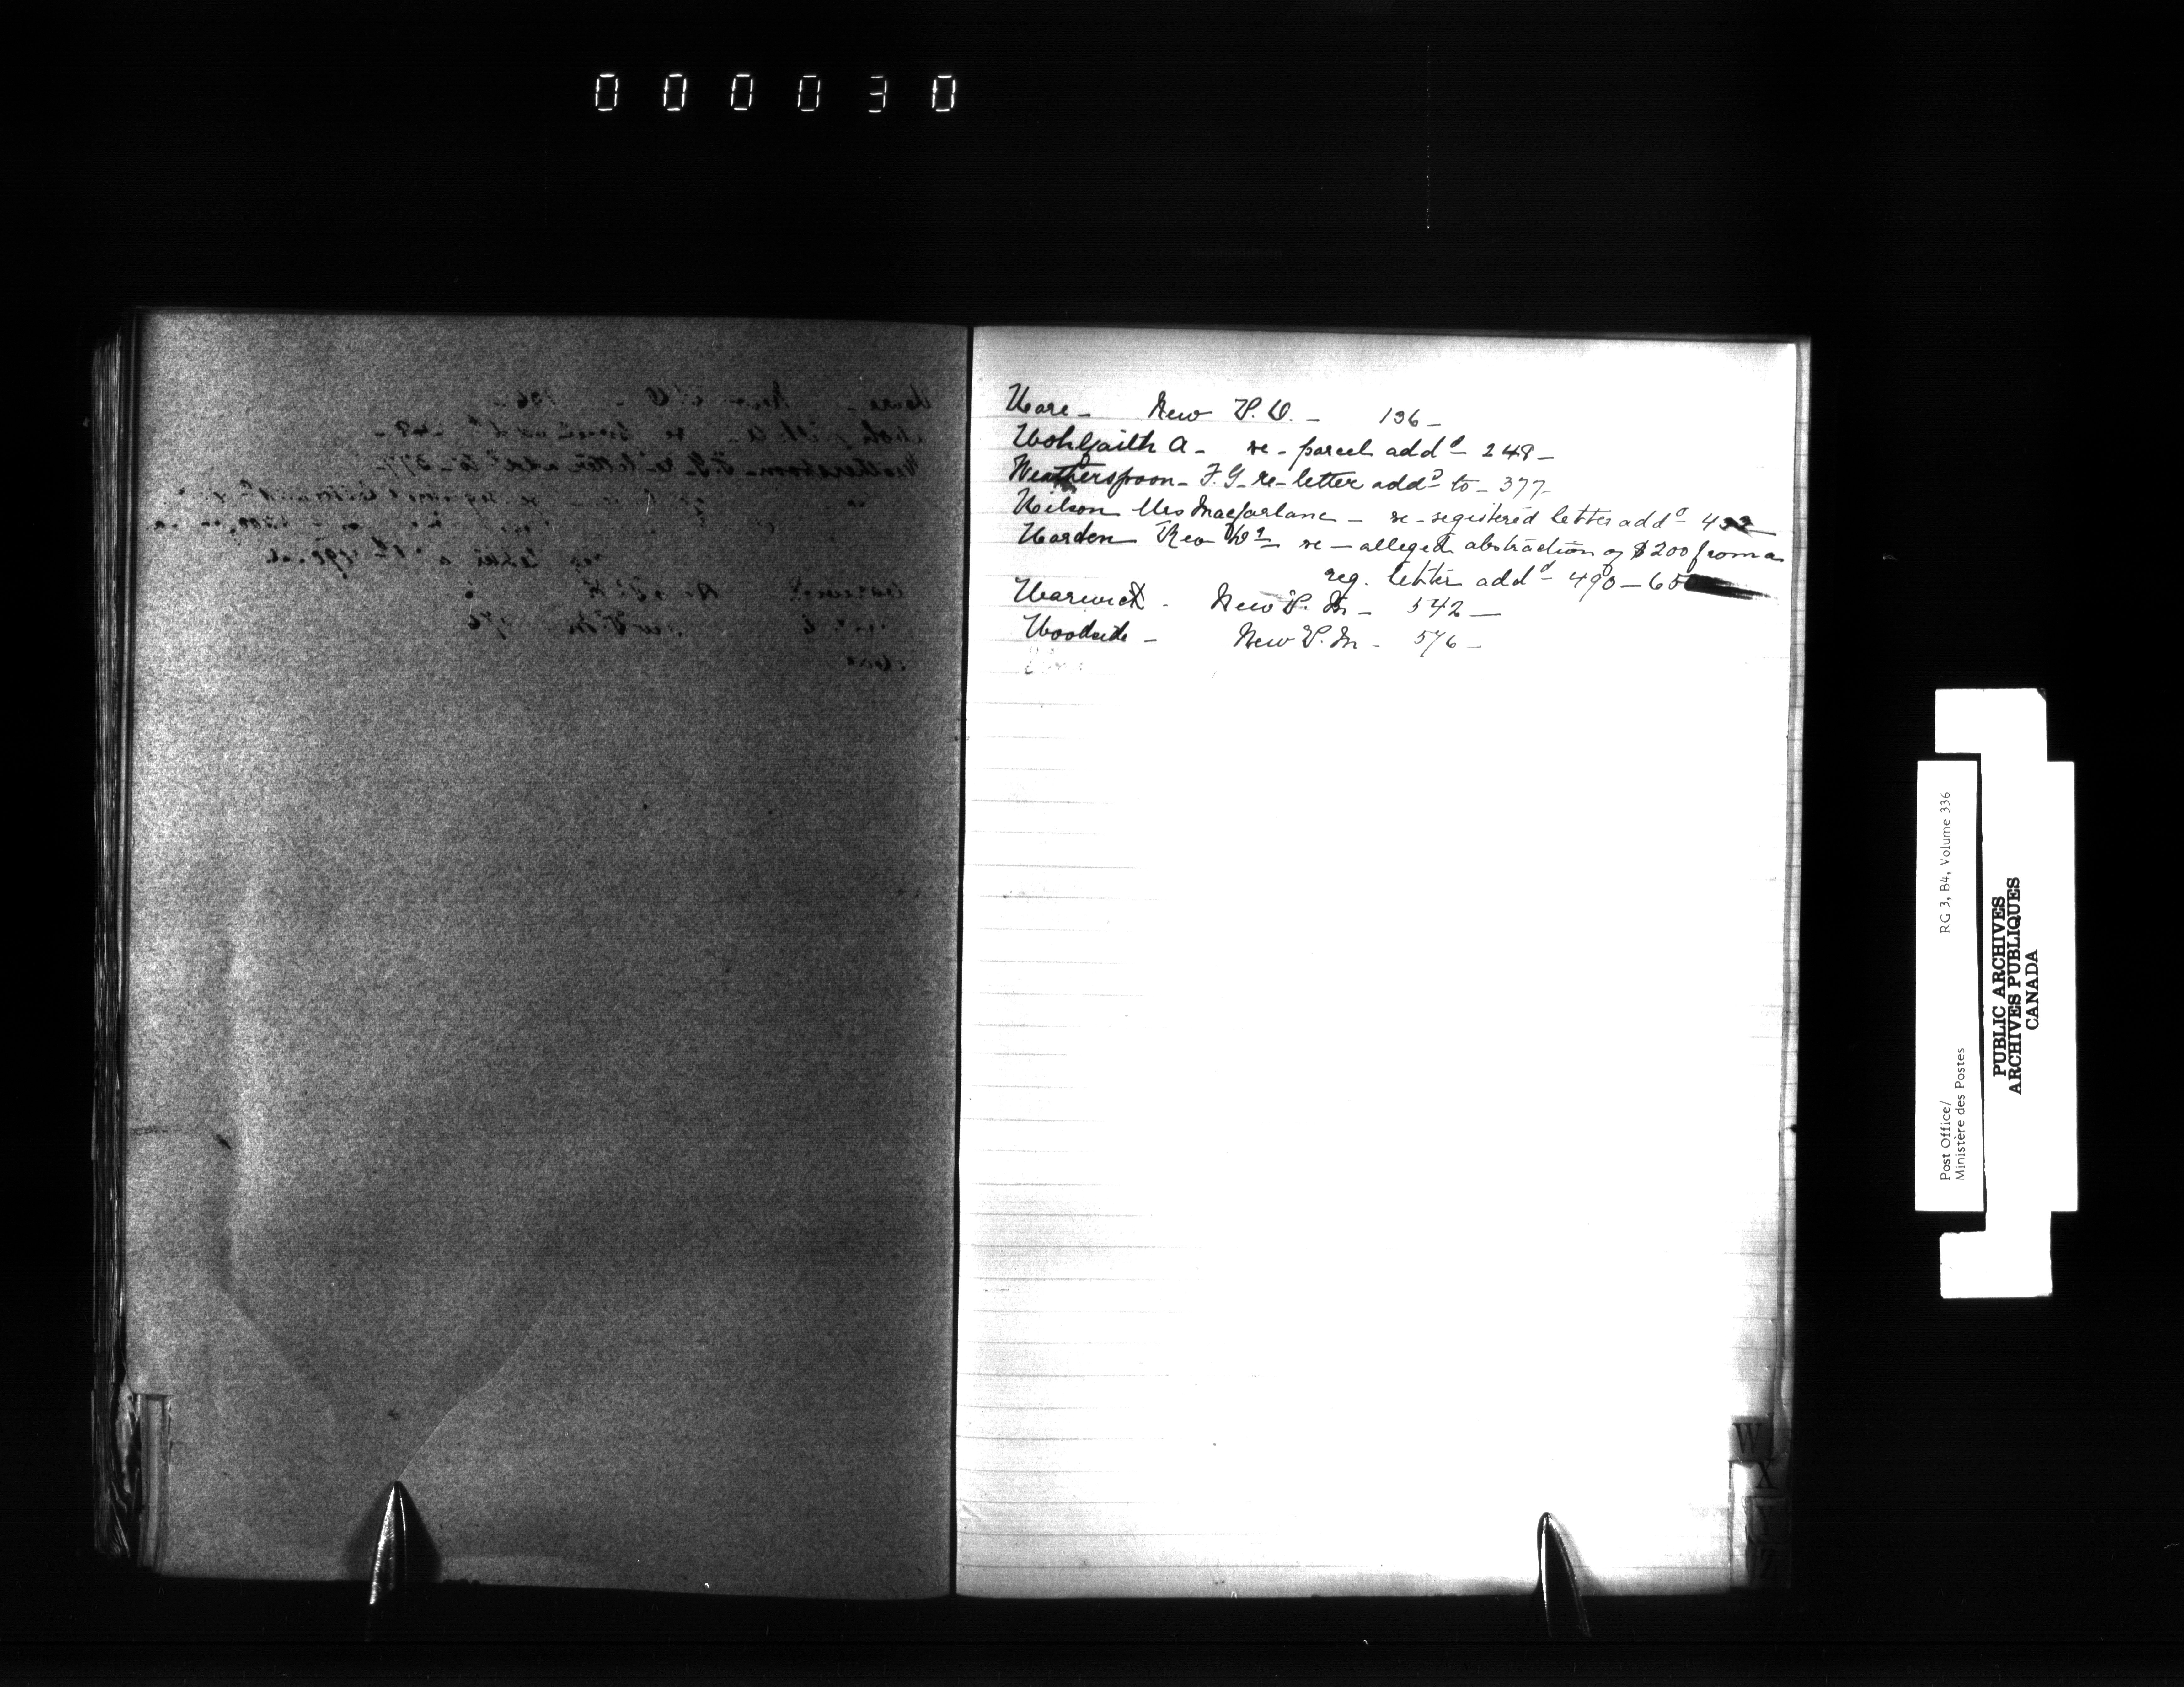 000030
Ware - New P.O. - 136 -
Wohlgaith A - re - parcel add^d - 248 -
Weatherspoon - F.G. re - letter add^d to - 377 -
Wilson Mrs Macfarlane - re - registered letter add^d -
Warden Rev D^r - re - alleged abstraction of $200 from a
reg. letter add^d - 490 - 65
Warwick - New P.M - 542 -
Woodside - New P.M - 576 -
W
X
Z
Post Office/ RG 3, B4, Volume 336
Ministère des Postes
PUBLIC ARCHIVES
ARCHIVES PUBLIQUES
CANADA